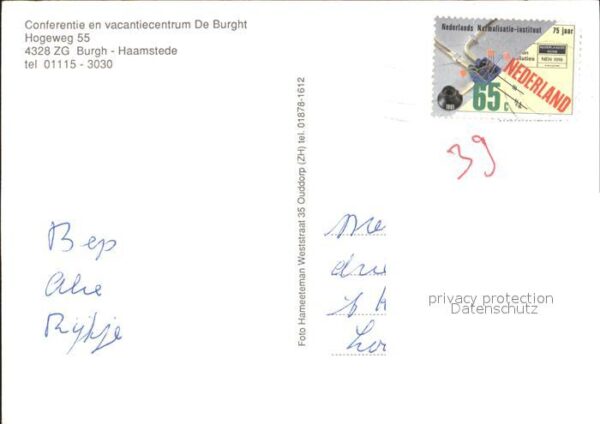 Conferentie en vacantiecentrum De Burght
Hogeweg 55
4328 ZG Burgh - Haamstede
tel 01115 - 3030
Nederlands Normalisatie-instituut 75 jaar
NEDERLAND
65 c
1991
39
Foto Hameeteman Weststraat 35 Ouddorp (ZH) tel. 01878-1612
Bep
Alie
Rijkje
privacy protection
Datenschutz